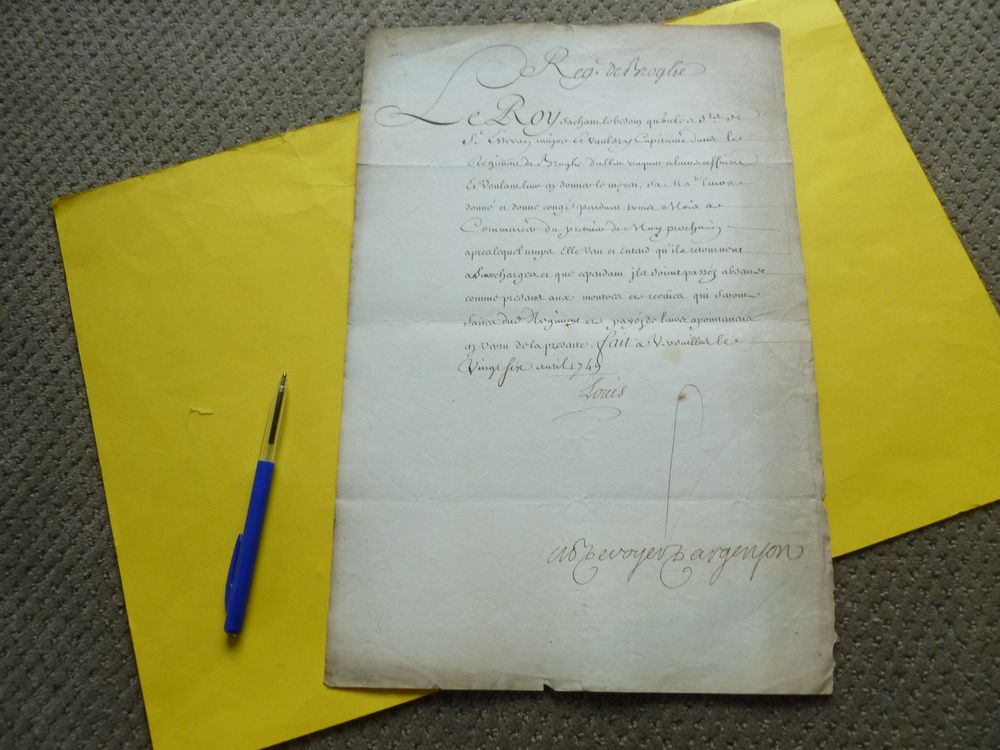 Reg.t de Broglie
Le Roy Sachant le besoin qu'ont les Srs. de
St. major Et Capitaine dans le
Regiment de Broglie d'aller vaquer a leurs affaires
Et Voulant leur en donner le moyen, Sa Ma.té leur a
donné et donne congé pendant trois Mois a
Commancer du premier de May prochain
apres lequel temps Elle veut et Entend qu'ils retournent
a leurs charges et que cependant ils soient passez absens
comme presens aux montres et reveües qui seront
faites dud. Regiment et payéz de leurs apointemens
en vertu de la presente. fait a Versailles le
Vingt six avril 1749
Louis
De voyer D'argenson